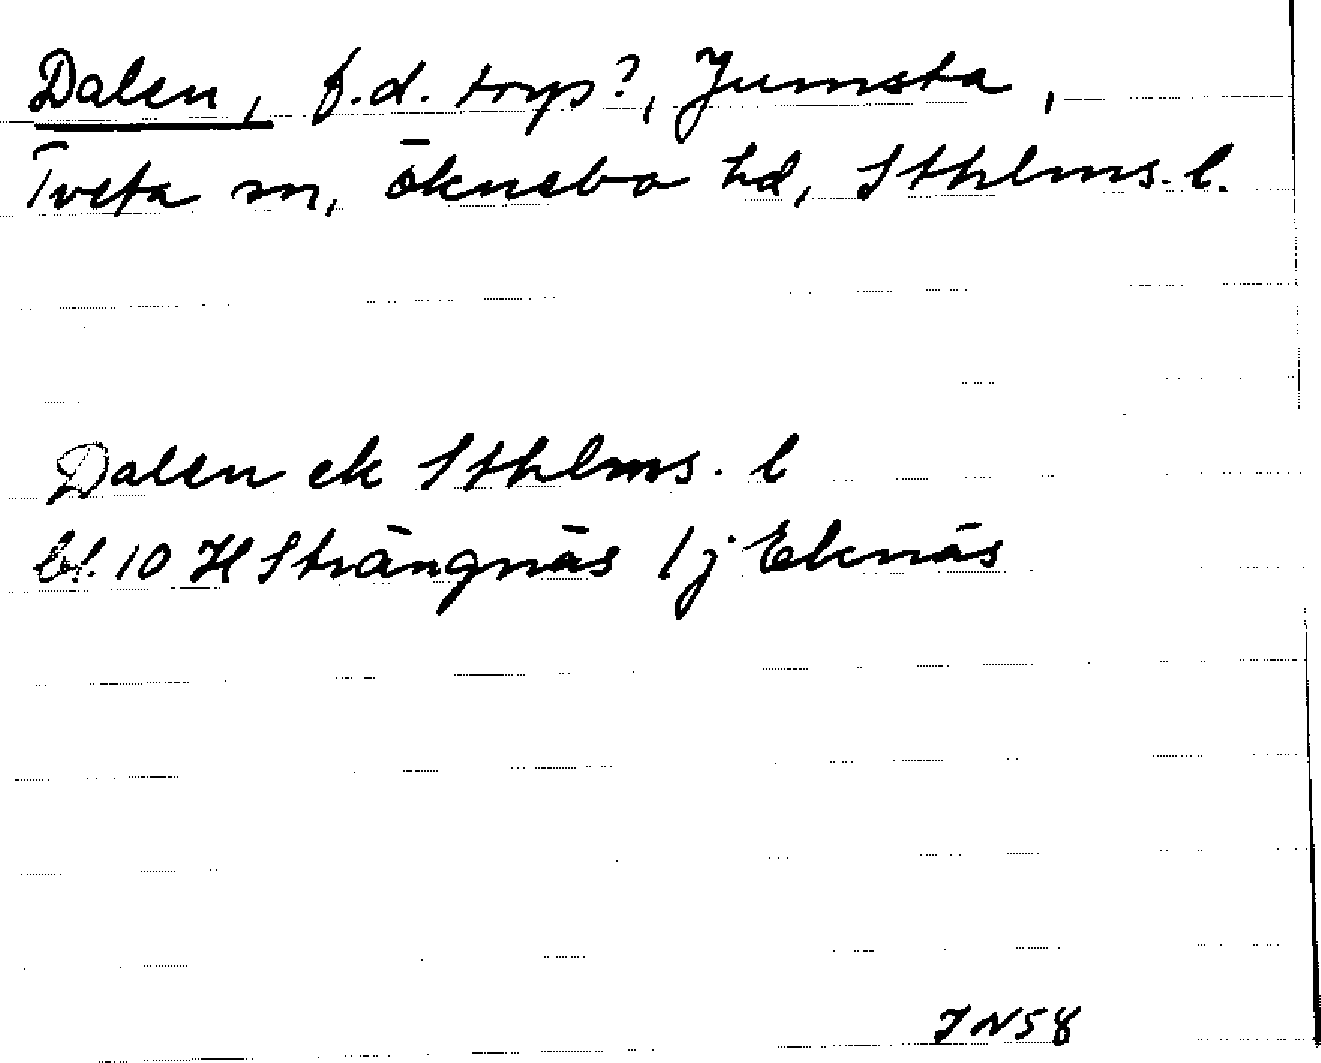 Dalen, f.d. torp?, Jumsta,
Tveta sn, Öknebo hd, Sthlms. l.
Dalen ek Sthlms. l
bl. 10 H Strängnäs 1j Eknäs
JN58